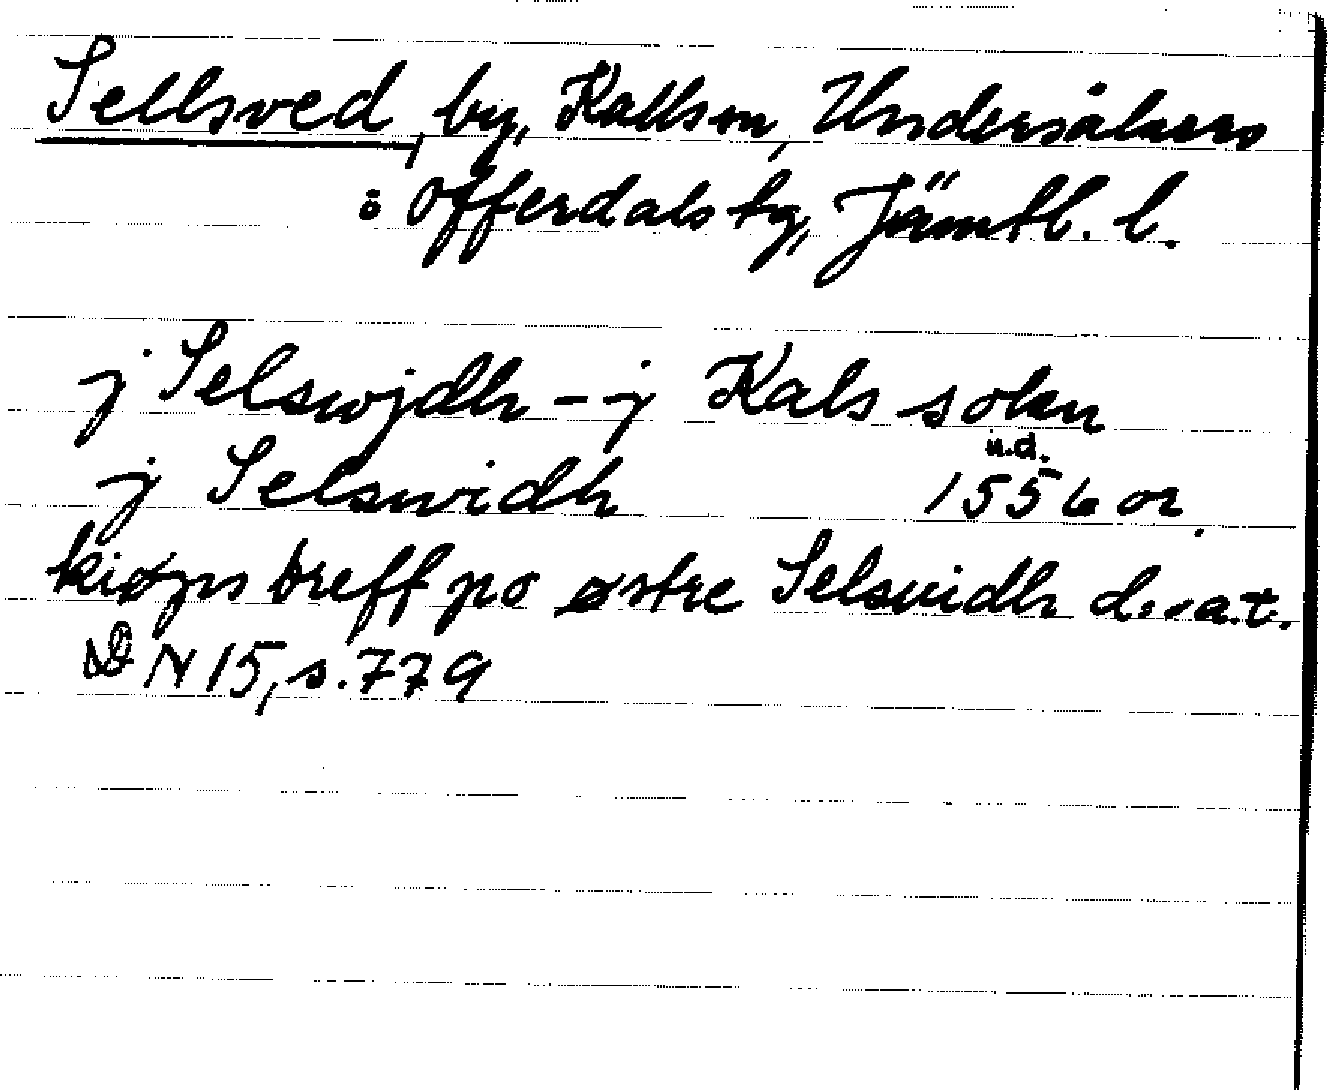 Sellsved, by, Kalls sn, Undersåkers
o Offerdals tg, Jämtl. l.
j Selswjdh – j Kals sokn
n.d.
j Selswidh 1556 or.
kiøps breff po østre Selsuidh d. s a.t.
DN 15, s. 779